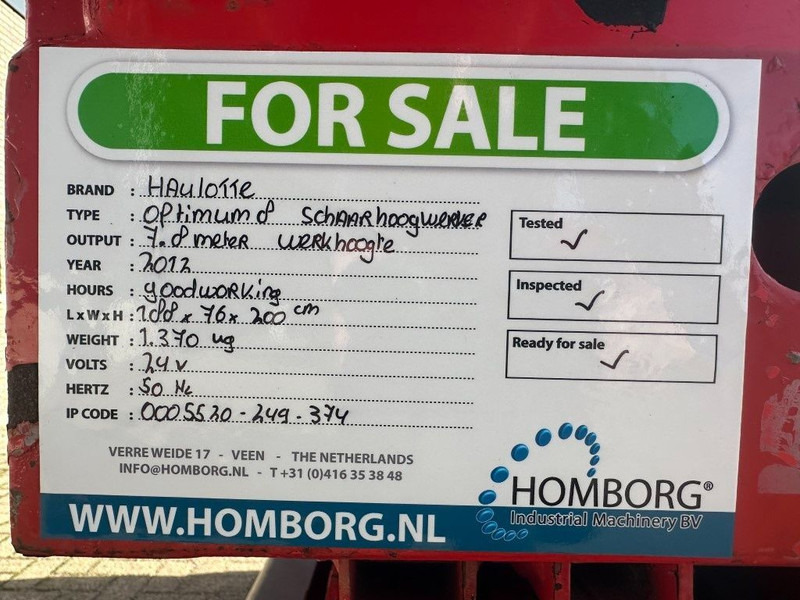 FOR SALE
BRAND : HAulOTTE
TYPE : OPtimum 8 SCHAARhoogWERKER
OUTPUT : 7.8 meter WERKhoogte
YEAR : 2012
HOURS : goodWORKing
L x W x H : 188 x 76 x 200 cm
WEIGHT : 1.370 kg
VOLTS : 24 V
HERTZ : 50 Hz
IP CODE : 0005520 - 249 - 374
Tested ✓
Inspected ✓
Ready for sale ✓
VERRE WEIDE 17 - VEEN - THE NETHERLANDS
INFO@HOMBORG.NL - T +31 (0)416 35 38 48
WWW.HOMBORG.NL
HOMBORG®
Industrial Machinery BV